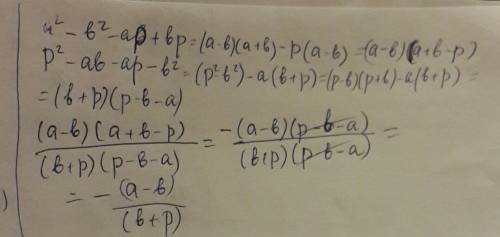 a² - b² - ap + bp = (a-b)(a+b) - p(a-b) = (a-b)(a+b-p)
p² - ab - ap - b² = (p² b²) - a(b+p) = (p-b)(p+b) - a(b+p) =
= (b+p)(p-b-a)
(a-b)(a+b-p)/(b+p)(p-b-a) = -(a-b)(p-b-a)/(b+p)(p-b-a) =
= - (a-b)/(b+p)
)